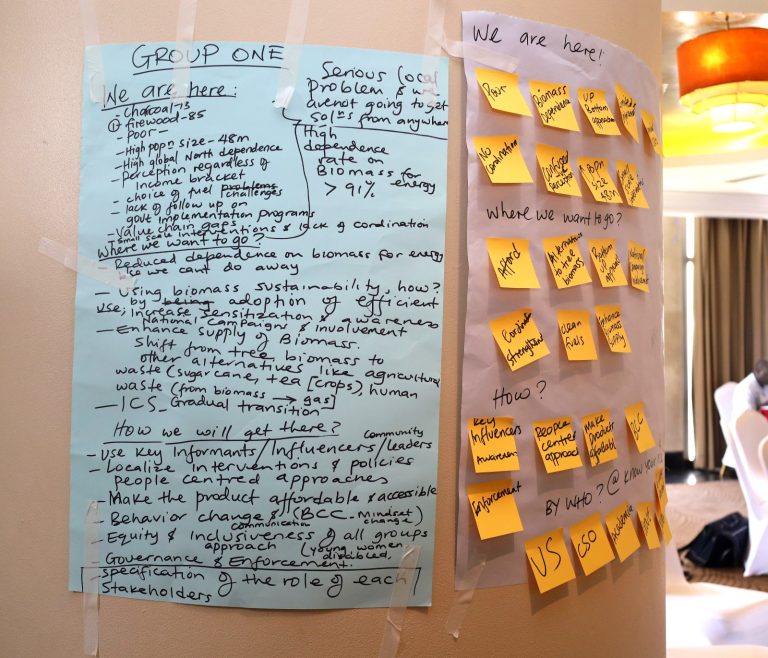 GROUP ONE
We are here:
- Charcoal-13
① firewood-85
- Poor-
- High popn size - 48m
- High global North dependence
- Perception regardless of
Income bracket
- choice of fuel problems challenges
- lack of follow up on
govt implementation programs
- Value chain gaps
small scale interventions & lack of cordination
Serious local
Problem & we
are not going to get
Solns from anywhere
High
dependence
rate on
BIOMASS for
energy
> 91%
Where we want to go?
- Reduced dependence on biomass for energy
like we cant do away
- Using biomass sustainability, how?
by being adoption of efficient
use; Increase sensitization & awareness
National campaigns & involvement
- Enhance supply of Biomass.
Shift from tree biomass to
other alternatives like agricultural
waste (sugarcane, tea [crops), human
waste (from biomass → gas)
- ICS_ Gradual transition]
How we will get there?
- Use Key Informants/Influencers/community leaders
- Localize interventions & policies
people centred approaches
- Make the product affordable & accessible
- Behavior change & communication (BCC - Mindset change)
- Equity & Inclusiveness of all groups
approach (young women, disabled,
- Governance & Enforcement
- specification of the role of each
Stakeholders
We are here!
Poor
Biomass Dependence
Up Bottom approach
No Cordination
Confused perception
POPn SIZE 48m
Where we want to go?
Afford
Alternatives to tree biomass
Bottom up approach
Cordination strengthen
clean fuels
Enhance Biomass Supply
How?
Key Influencers Awareness
People centred approach
Make Products affordable
BCC
Enforcement
BY WHO? @ KNOW YOUR
US
CSO
Academia